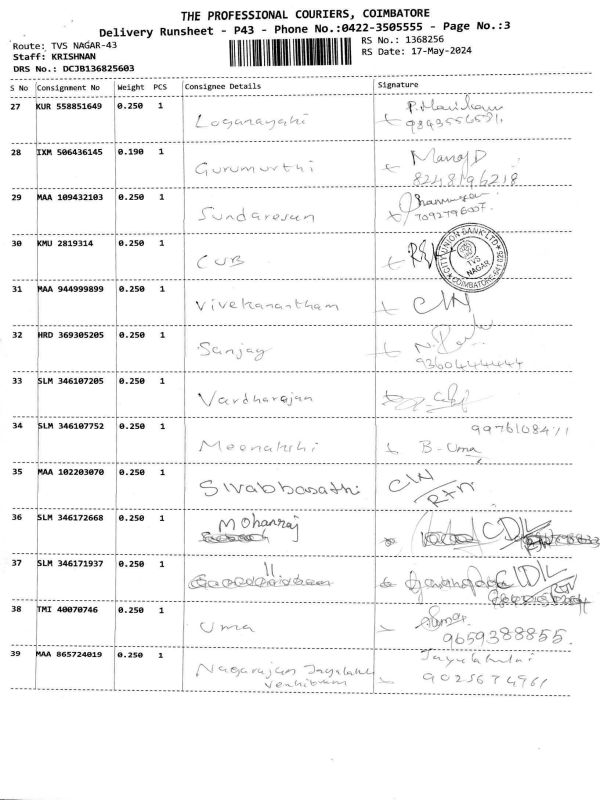 THE PROFESSIONAL COURIERS, COIMBATORE
Delivery Runsheet - P43 - Phone No.:0422-3505555 - Page No.:3
Route: TVS NAGAR-43
RS No.: 1368256
Staff: KRISHNAN
RS Date: 17-May-2024
DRS No.: DCJB136825603
S No Consignment No Weight PCS Consignee Details Signature
27 KUR 558851649 0.250 1 Loganayahi
28 IXM 506436145 0.190 1 Gurumurthi Manoj D
8248196218
29 MAA 109432103 0.250 1 Sundaresan
7092796007.
30 KMU 2819314 0.250 1 CUB
CITY UNION BANK LTD
TVS
NAGAR
COIMBATORE-641 025
31 MAA 944999899 0.250 1 Vivekanantham
32 HRD 369305205 0.250 1 Sanjay
9360444444
33 SLM 346107205 0.250 1 Vardharajan
34 SLM 346107752 0.250 1 Meenakshi B-Uma
35 MAA 102203070 0.250 1 Sivabbasathi
36 SLM 346172668 0.250 1 Mohanraj
37 SLM 346171937 0.250 1 11
38 TMI 40070746 0.250 1 Uma
9659388855.
39 MAA 865724019 0.250 1 Nagarajan
9025674961